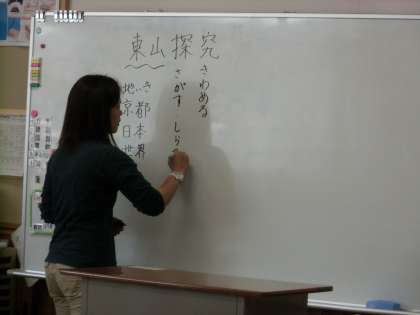 東山探究
きわめる
さがす・しら
地いき
京都
日本
世界